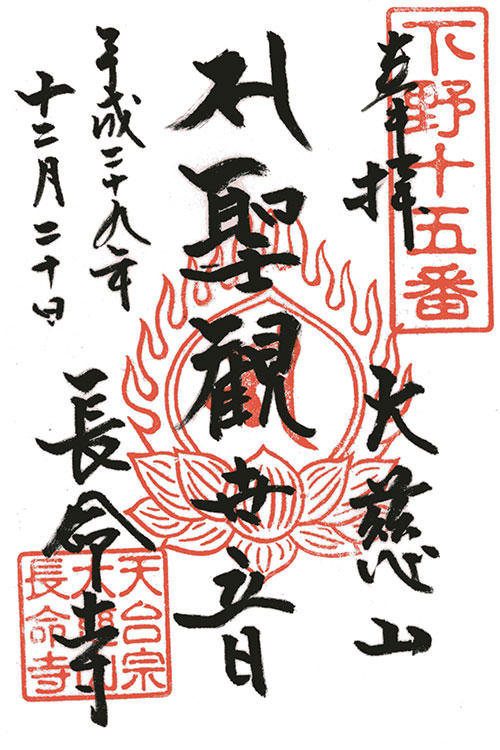 下野十五番
奉拝
大慈山
聖観世音
平成二十九年
十二月二十日
長命寺
天台宗
大慈山
長命寺